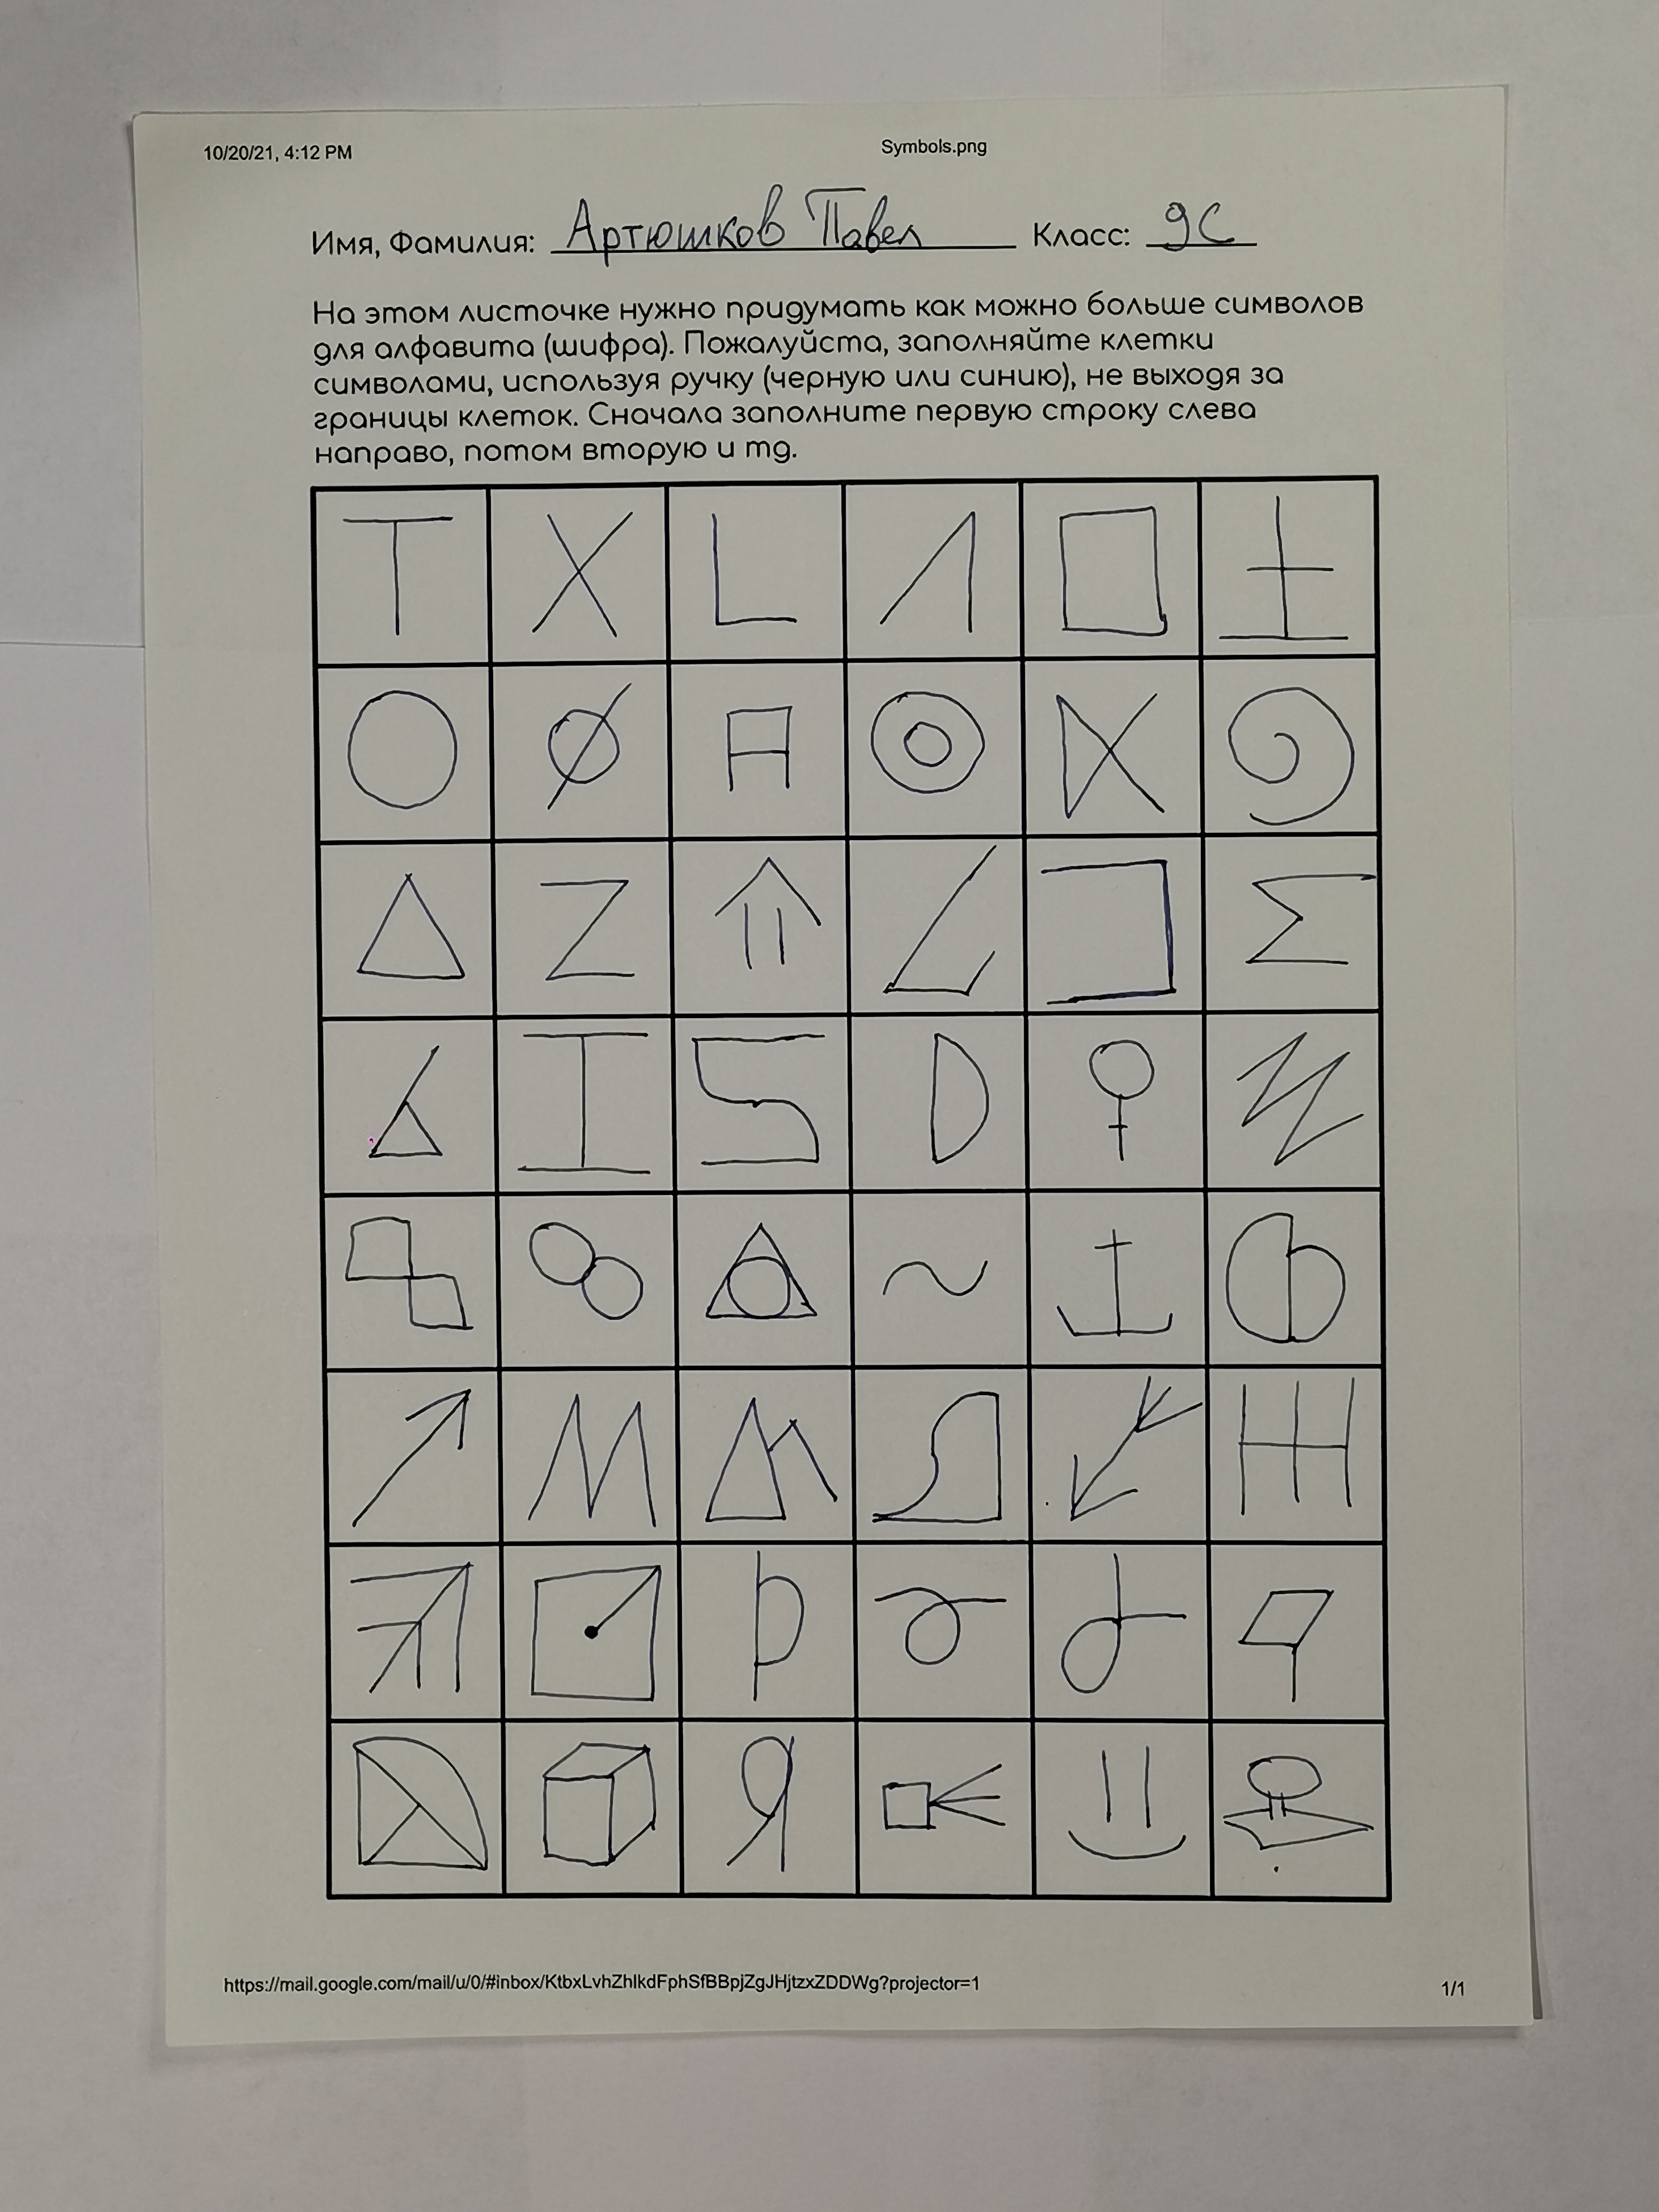 10/20/21, 4:12 PM
Symbols.png
Имя, Фамилия: Артюшков Павел Класс: 9С
На этом листочке нужно придумать как можно больше символов
для алфавита (шифра). Пожалуйста, заполняйте клетки
символами, используя ручку (черную или синию), не выходя за
границы клеток. Сначала заполните первую строку слева
направо, потом вторую и тд.
https://mail.google.com/mail/u/0/#inbox/KtbxLvhZhlkdFphSfBBpjZgJHjtzxZDDWg?projector=1
1/1